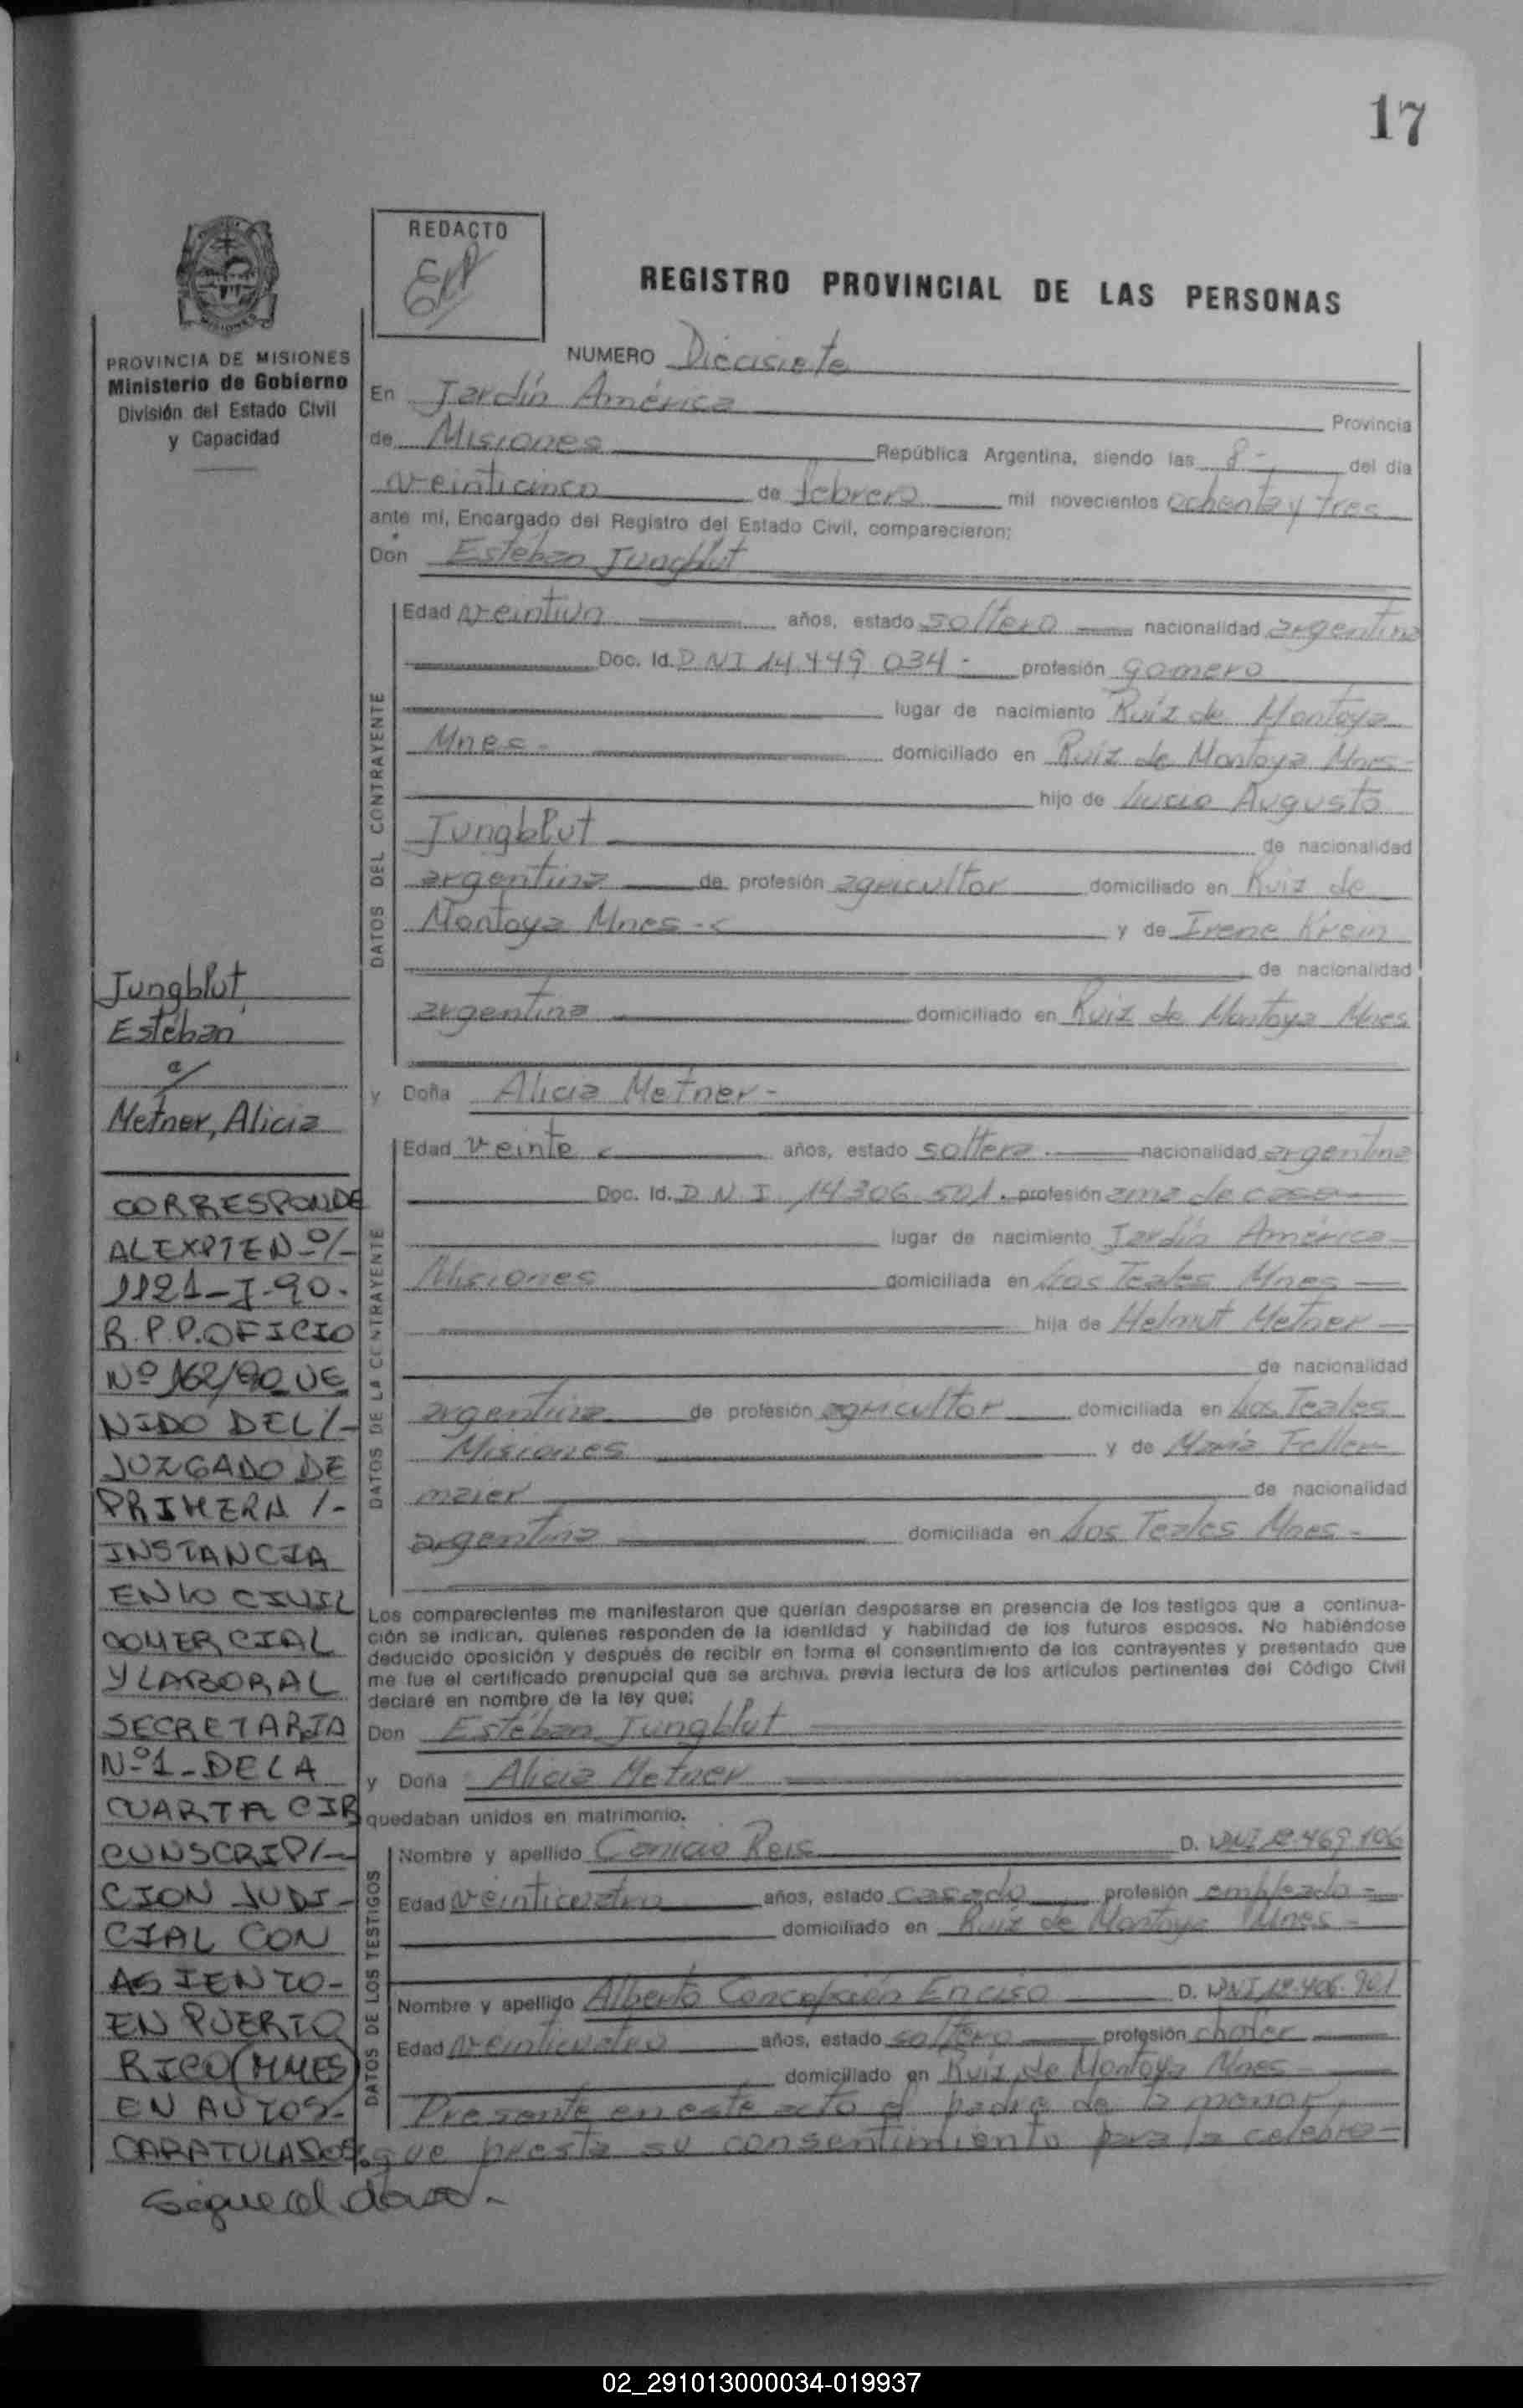 17
REDACTO
REGISTRO PROVINCIAL DE LAS PERSONAS
PROVINCIA DE MISIONES
Ministerio de Gobierno
División del Estado Civil
y Capacidad
NUMERO Diecisiete
En Jardín América Provincia
de Misiones República Argentina, siendo las 8 - del día
veinticinco de febrero mil novecientos ochenta y tres
ante mí, Encargado del Registro del Estado Civil, comparecieron:
Don Estéban Jungblut
DATOS DEL CONTRAYENTE
Edad veintiun años, estado soltero nacionalidad argentina
Doc. Id. D.N.I 14.449.034 - profesión gomero
lugar de nacimiento Ruíz de Montoya
Mnes - domiciliado en Ruíz de Montoya Mnes -
hijo de Lucio Augusto
Jungblut de nacionalidad
argentina de profesión agricultor domiciliado en Ruiz de
Montoya Mnes - y de Irene Krein
de nacionalidad
argentina domiciliado en Ruiz de Montoya Mnes
y Doña Alicia Metner -
DATOS DE LA CONTRAYENTE
Edad veinte años, estado soltera nacionalidad argentina
Doc. Id. D.N.I. 14.306.501 - profesión ama de casa
lugar de nacimiento Jardín América
Misiones domiciliada en Los Teales Mnes
hija de Helmut Metner
de nacionalidad
argentina de profesión agricultor domiciliada en Los Teales
Misiones y de María Feller-
maier de nacionalidad
argentina domiciliada en Los Teales Mnes -
Los comparecientes me manifestaron que querían desposarse en presencia de los testigos que a continua-
ción se indican, quienes responden de la identidad y habilidad de los futuros esposos. No habiéndose
deducido oposición y después de recibir en forma el consentimiento de los contrayentes y presentado que
me fue el certificado prenupcial que se archiva, previa lectura de los artículos pertinentes del Código Civil
declaré en nombre de la ley que:
Don Estéban Jungblut
y Doña Alicia Metner
quedaban unidos en matrimonio.
DATOS DE LOS TESTIGOS
Nombre y apellido Reis D. DNI 12.469.106
Edad veinticuatro años, estado casado profesión empleado -
domiciliado en Ruiz de Montoya Mnes -
Nombre y apellido Alberto Concepción Enciso D. DNI 12.406.901
Edad veinticuatro años, estado soltero profesión chofer
domiciliado en Ruiz de Montoya Mnes -
Presente en este acto el padre de la menor,
que presta su consentimiento para la celebra-
Jungblut,
Estéban
c/
Metner, Alicia
CORRESPONDE
AL EXPTE Nº/-
1121-J-90.
R.P.P. OFICIO
Nº 162/90 VE
NIDO DEL/-
JUZGADO DE
PRIMERA/-
INSTANCIA
EN LO CIVIL
COMERCIAL
Y LABORAL
SECRETARIA
Nº1-DE LA
CUARTA CIR
CUNSCRIP/-
CION JUDI-
CIAL CON
ASIENTO-
EN PUERTO
RICO (MNES)
EN AUTOS-
CARATULADOS:
Sigue al dorso.-
02_291013000034-019937